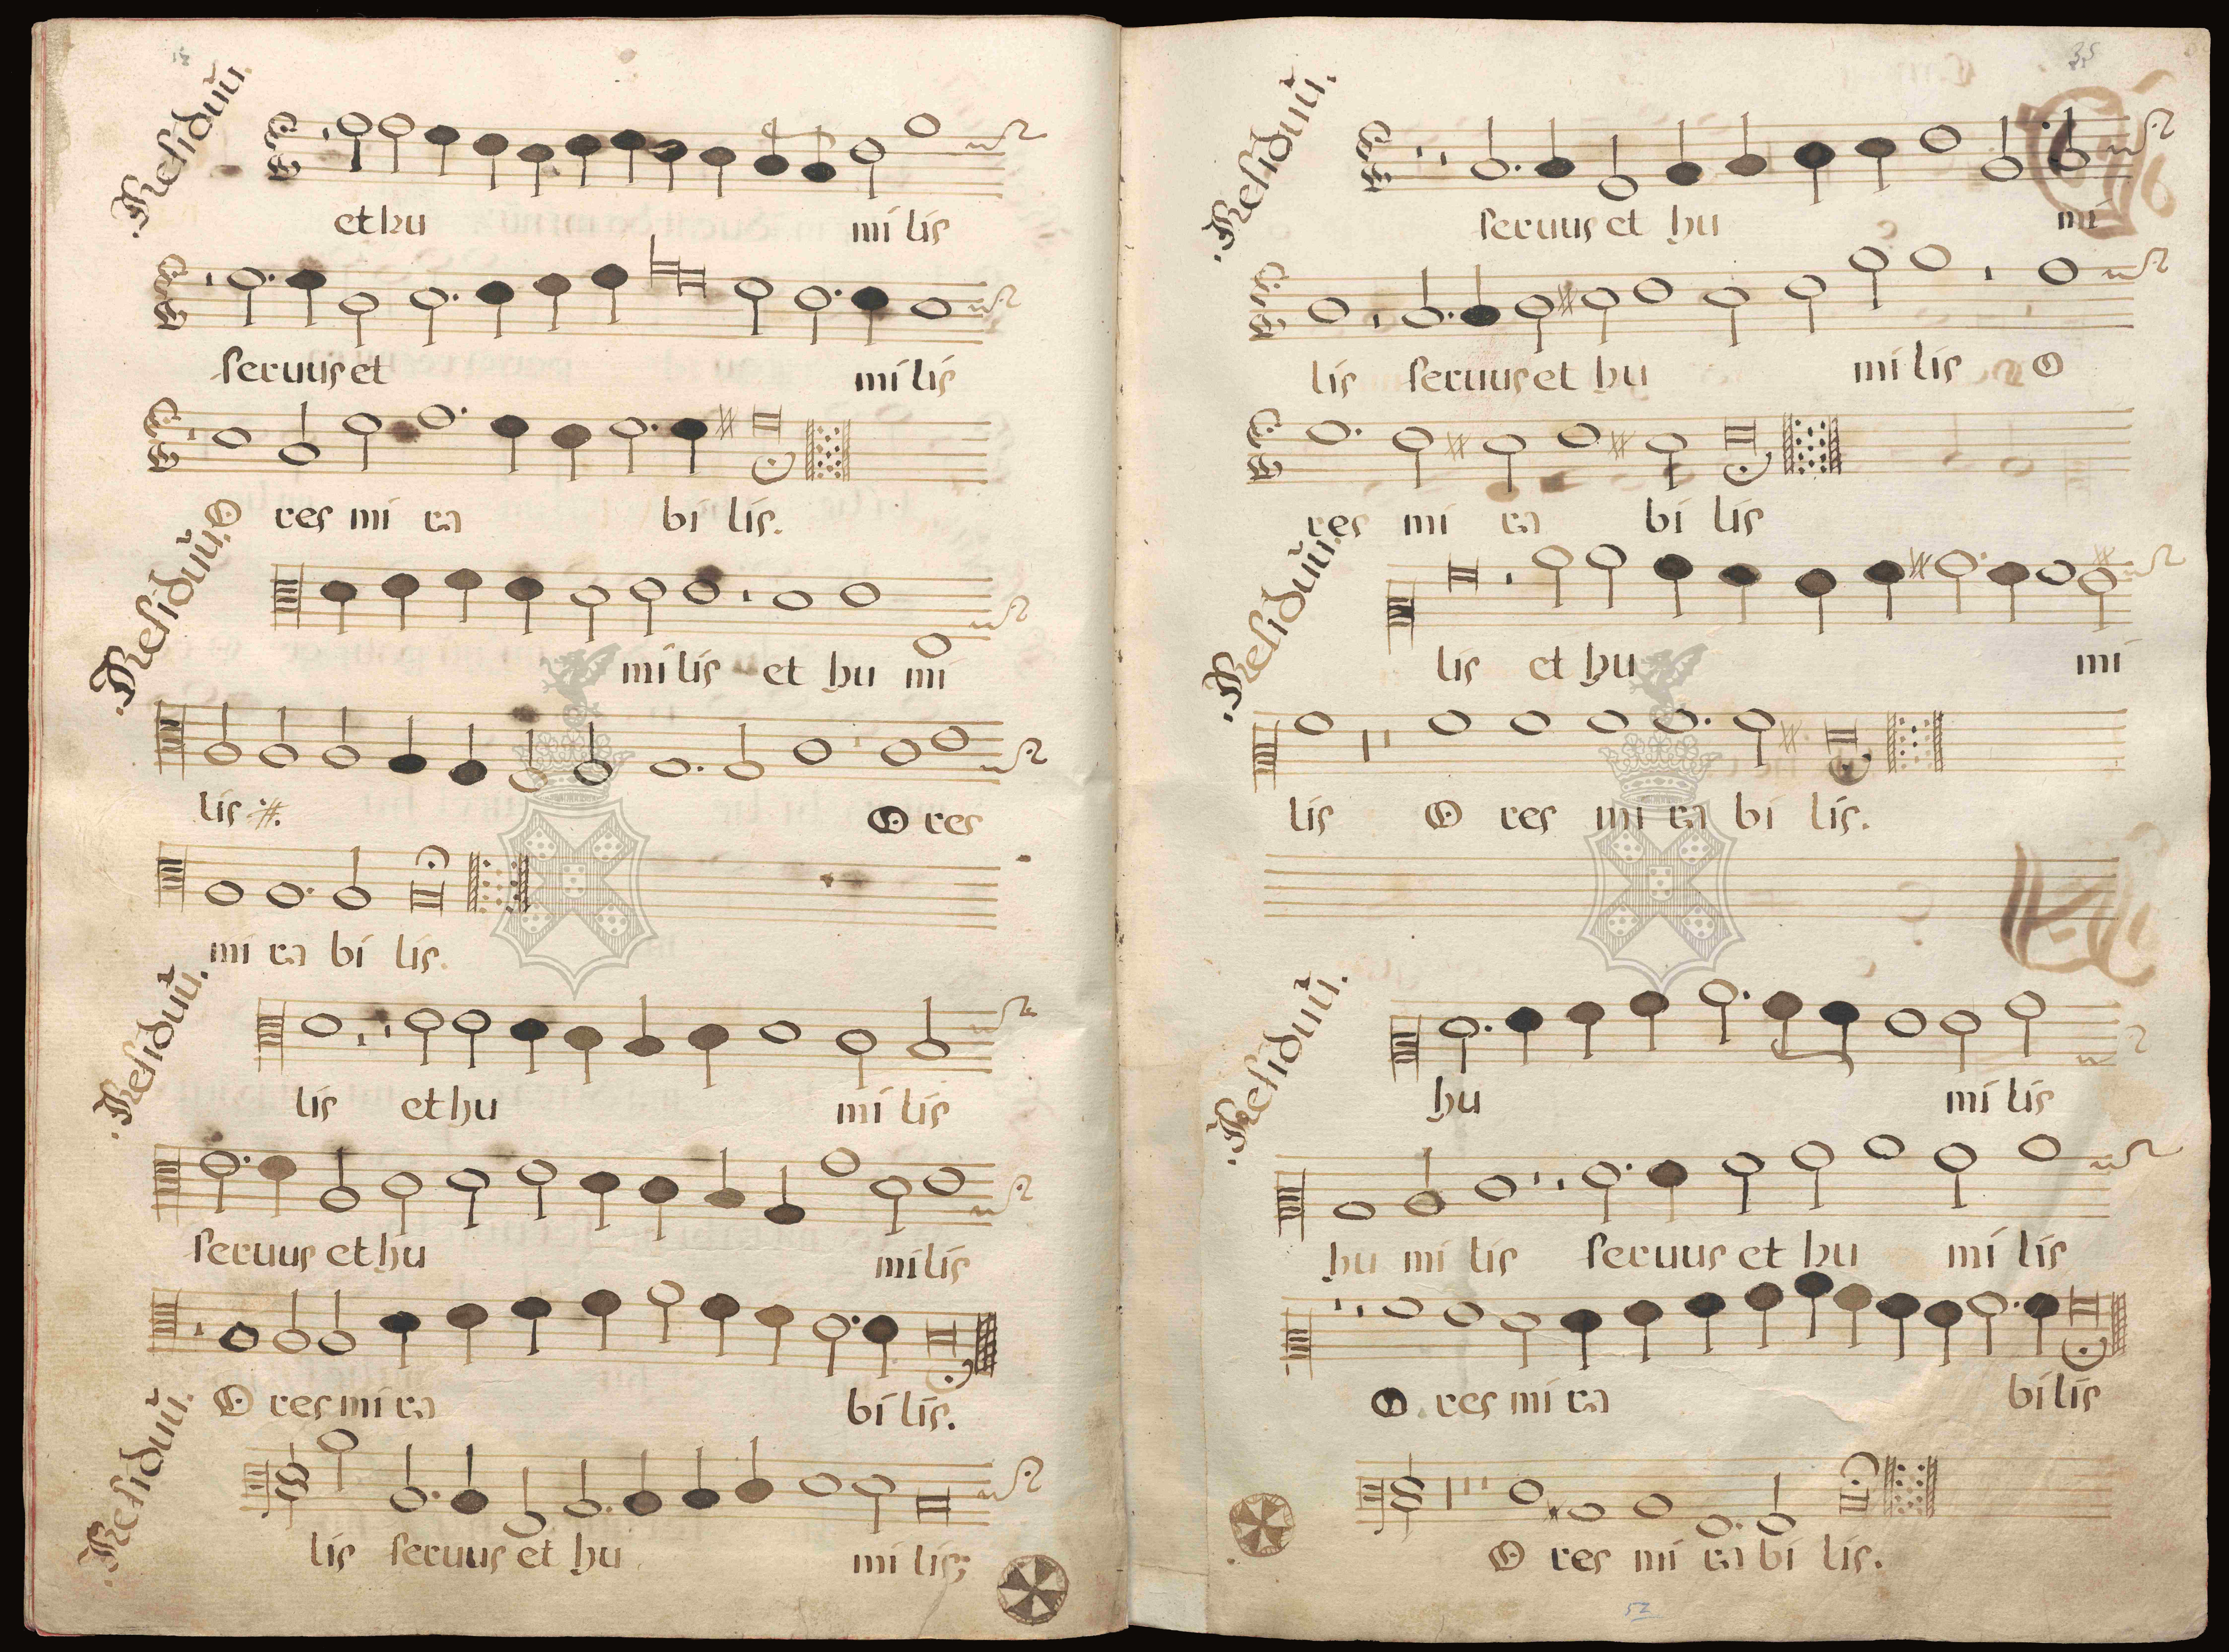 .Residuũ.
et hu mi lis
seruus et mi lis
O res mi ra bi lis.
.Residuũ.
mi lis et hu mi
lis :#: O res
mi ra bi lis.
.Residuũ.
lis et hu mi lis
seruus et hu mi lis
O res mi ra bi lis.
.Residuũ.
lis seruus et hu mi lis:
35
.Residuũ.
seruus et hu mi
lis seruus et hu mi lis O
res mi ra bi lis
.Residuũ.
lis et hu mi
lis O res mi ra bi lis.
.Residuũ.
hu mi lis
hu mi lis seruus et hu mi lis
O res mi ra bi lis
O res mi ra bi lis.
52